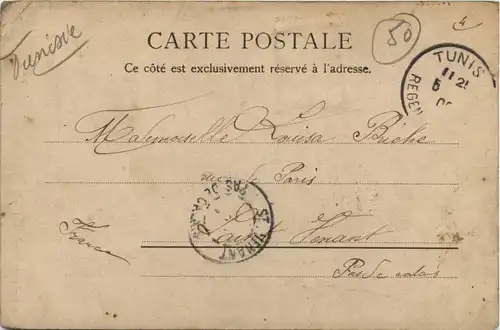 Tunisie
50
4
CARTE POSTALE
Ce côté est exclusivement réservé à l'adresse.
TUNIS
11 25
5
REGEN
Mademoiselle Louisa
rue de Paris
PAS DE CALAIS
ST VENANT
Saint Venant
France
Pas de calais